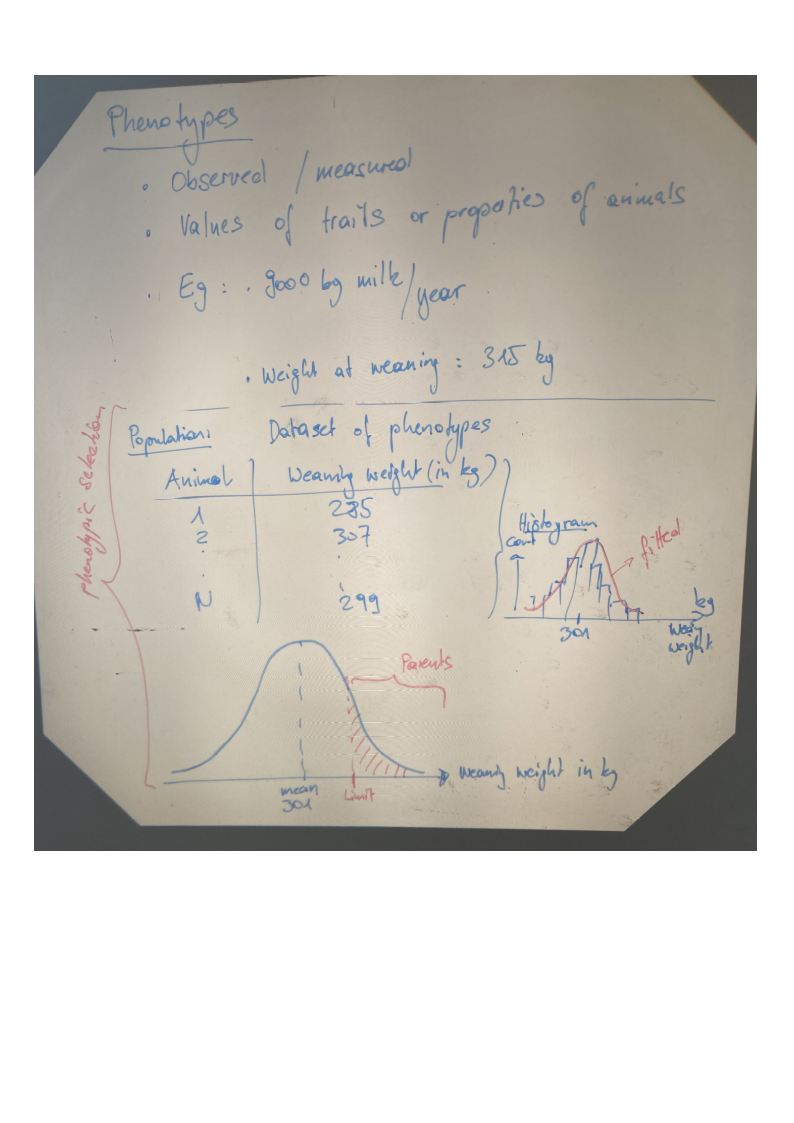 Phenotypes
• Observed / measured
• Values of traits or properties of animals
• Eg : • 9000 kg milk/year
• Weight at weaning : 315 kg
phenotypic selection
Population: Dataset of phenotypes
Animal Weaning weight (in kg)
1 285
2 307
. .
. .
N 299
Histogram
count
fitted
301
kg
weight
Parents
Weaning weight in kg
mean
301
Limit